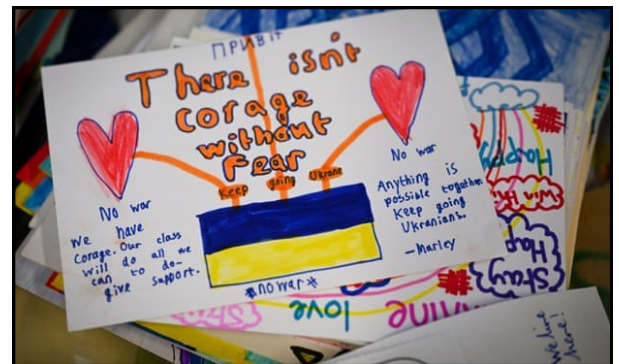 ПРИВІТ
There isn't
corage
without
Fear
Keep going Ukrane
No war
We have
corage. Our class
will do all we
can to do
give support.
No war
Anything is
possible together.
Keep going
Ukranians.
—Marley
*no war*
Happy
Stay
Happ
love
we live
here!